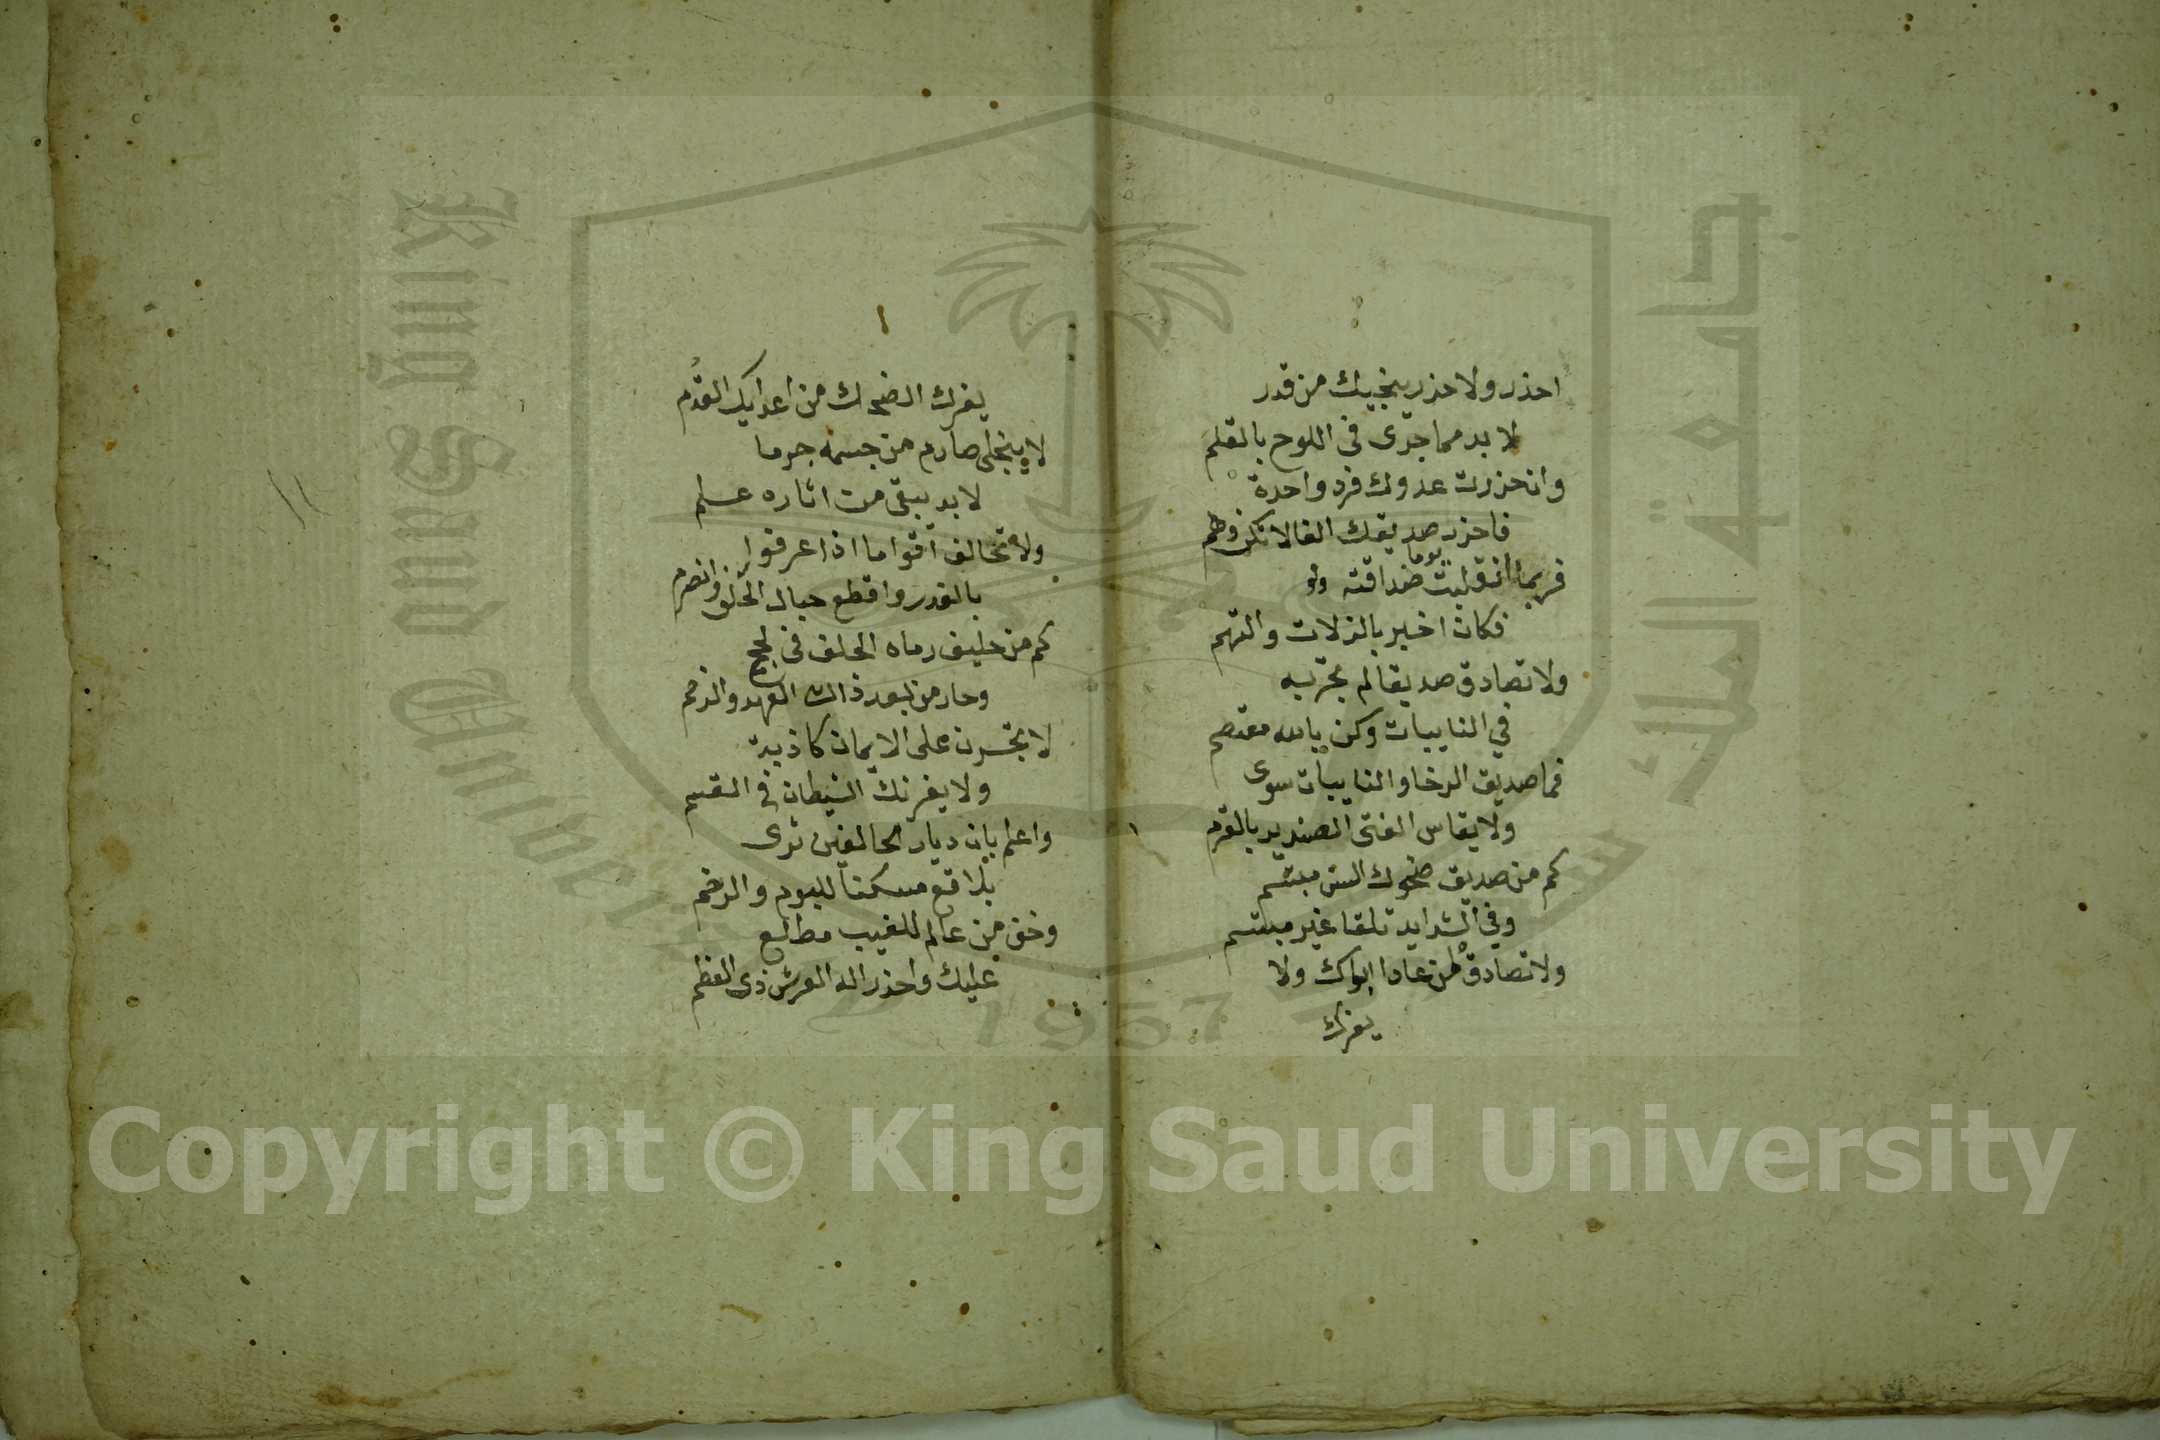 احذر ولا حذر ينجيك من قدر
لا بد مما جرى فى اللوح بالقلم
وان حذرت عدوك فرد واحدة
فاحذر صديقك الفا لا تكن
فربما انقلبت يوما صداقته
فكان اخبر بالزلات والتهم
ولا تصادق صديقا لم تجربه
في النايبات وكن بالله معتصم
فما صديق الرخا والنايبات سوى
ولا يقاس الفتى الصنديد بالقزم
كم من صديق ضحوك السن مبتسم
وفي الشدايد تلقا غير مبتسم
ولا تصادق لمن عادا ابوك ولا
يغرك
يغرك الضحك من اعدايك القدم
لا ينجلى صارم من جسمه جرما
لا بد يبقى من اثاره علم
ولا تحالف اقواما اذا عرفوا
بالغدر واقطع حبال الحلف وانصرم
كم من حليف رماه الحلف فى لجج
وحار من بعد ذاك العهد والذمم
لا تجسرن على الايمان كاذبة
ولا يغرنك الشيطان في القسم
واعلم بان ديار الحالفين ترى
بلاقع مسكنا للبوم والرخم
وخف من عالم للغيب مطلع
عليك واحذر اله العرش ذى العظم
Copyright © King Saud University
King Saud University
جامعة الملك سعود
1957